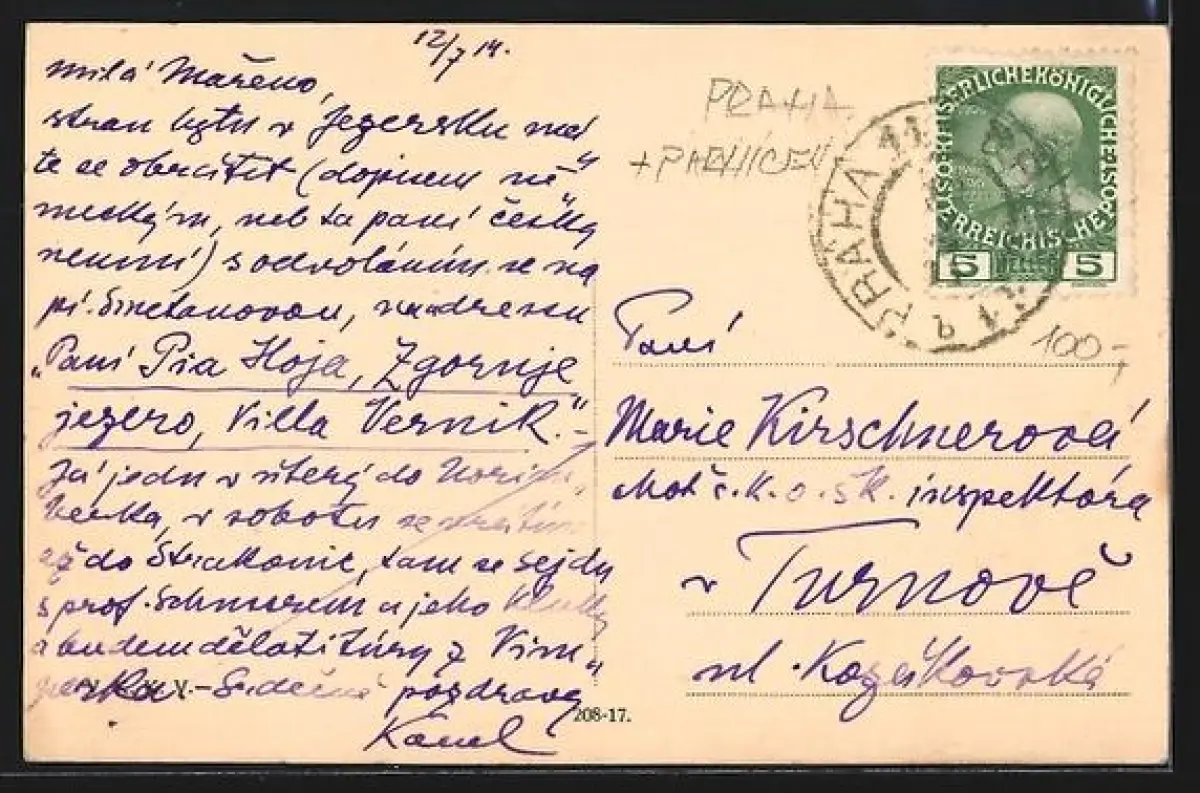 12/7 14.
milá Mařeno,
stran bytu v Jezersku mů
te se obrátit (dopisem ně„
meckým, neb ta paní česky
neumí) s odvoláním se na
pí. Smetanovou, na adresu
„Paní Pia Hoja, Zgornje
jezero, Villa Vernik.“ –
Já jedu v úterý do Norim„
berka, v sobotu se vrátím
až do Strakonic, tam se sejdu
s prof. Schnurem a jeho kluky
a budem dělati túry z Vim„
perka. – Srdečné pozdravy
Karel
208-17.
PRAHA
+ PARDUBICE
KAISERLICHE KÖNIGLICHE ÖSTERREICHISCHE POST
5 5
PRAHA
100-,
Paní
Marie Kirschnerová
choť c. k. o. šk. inspektora
v Turnově
ul. Kozákovská